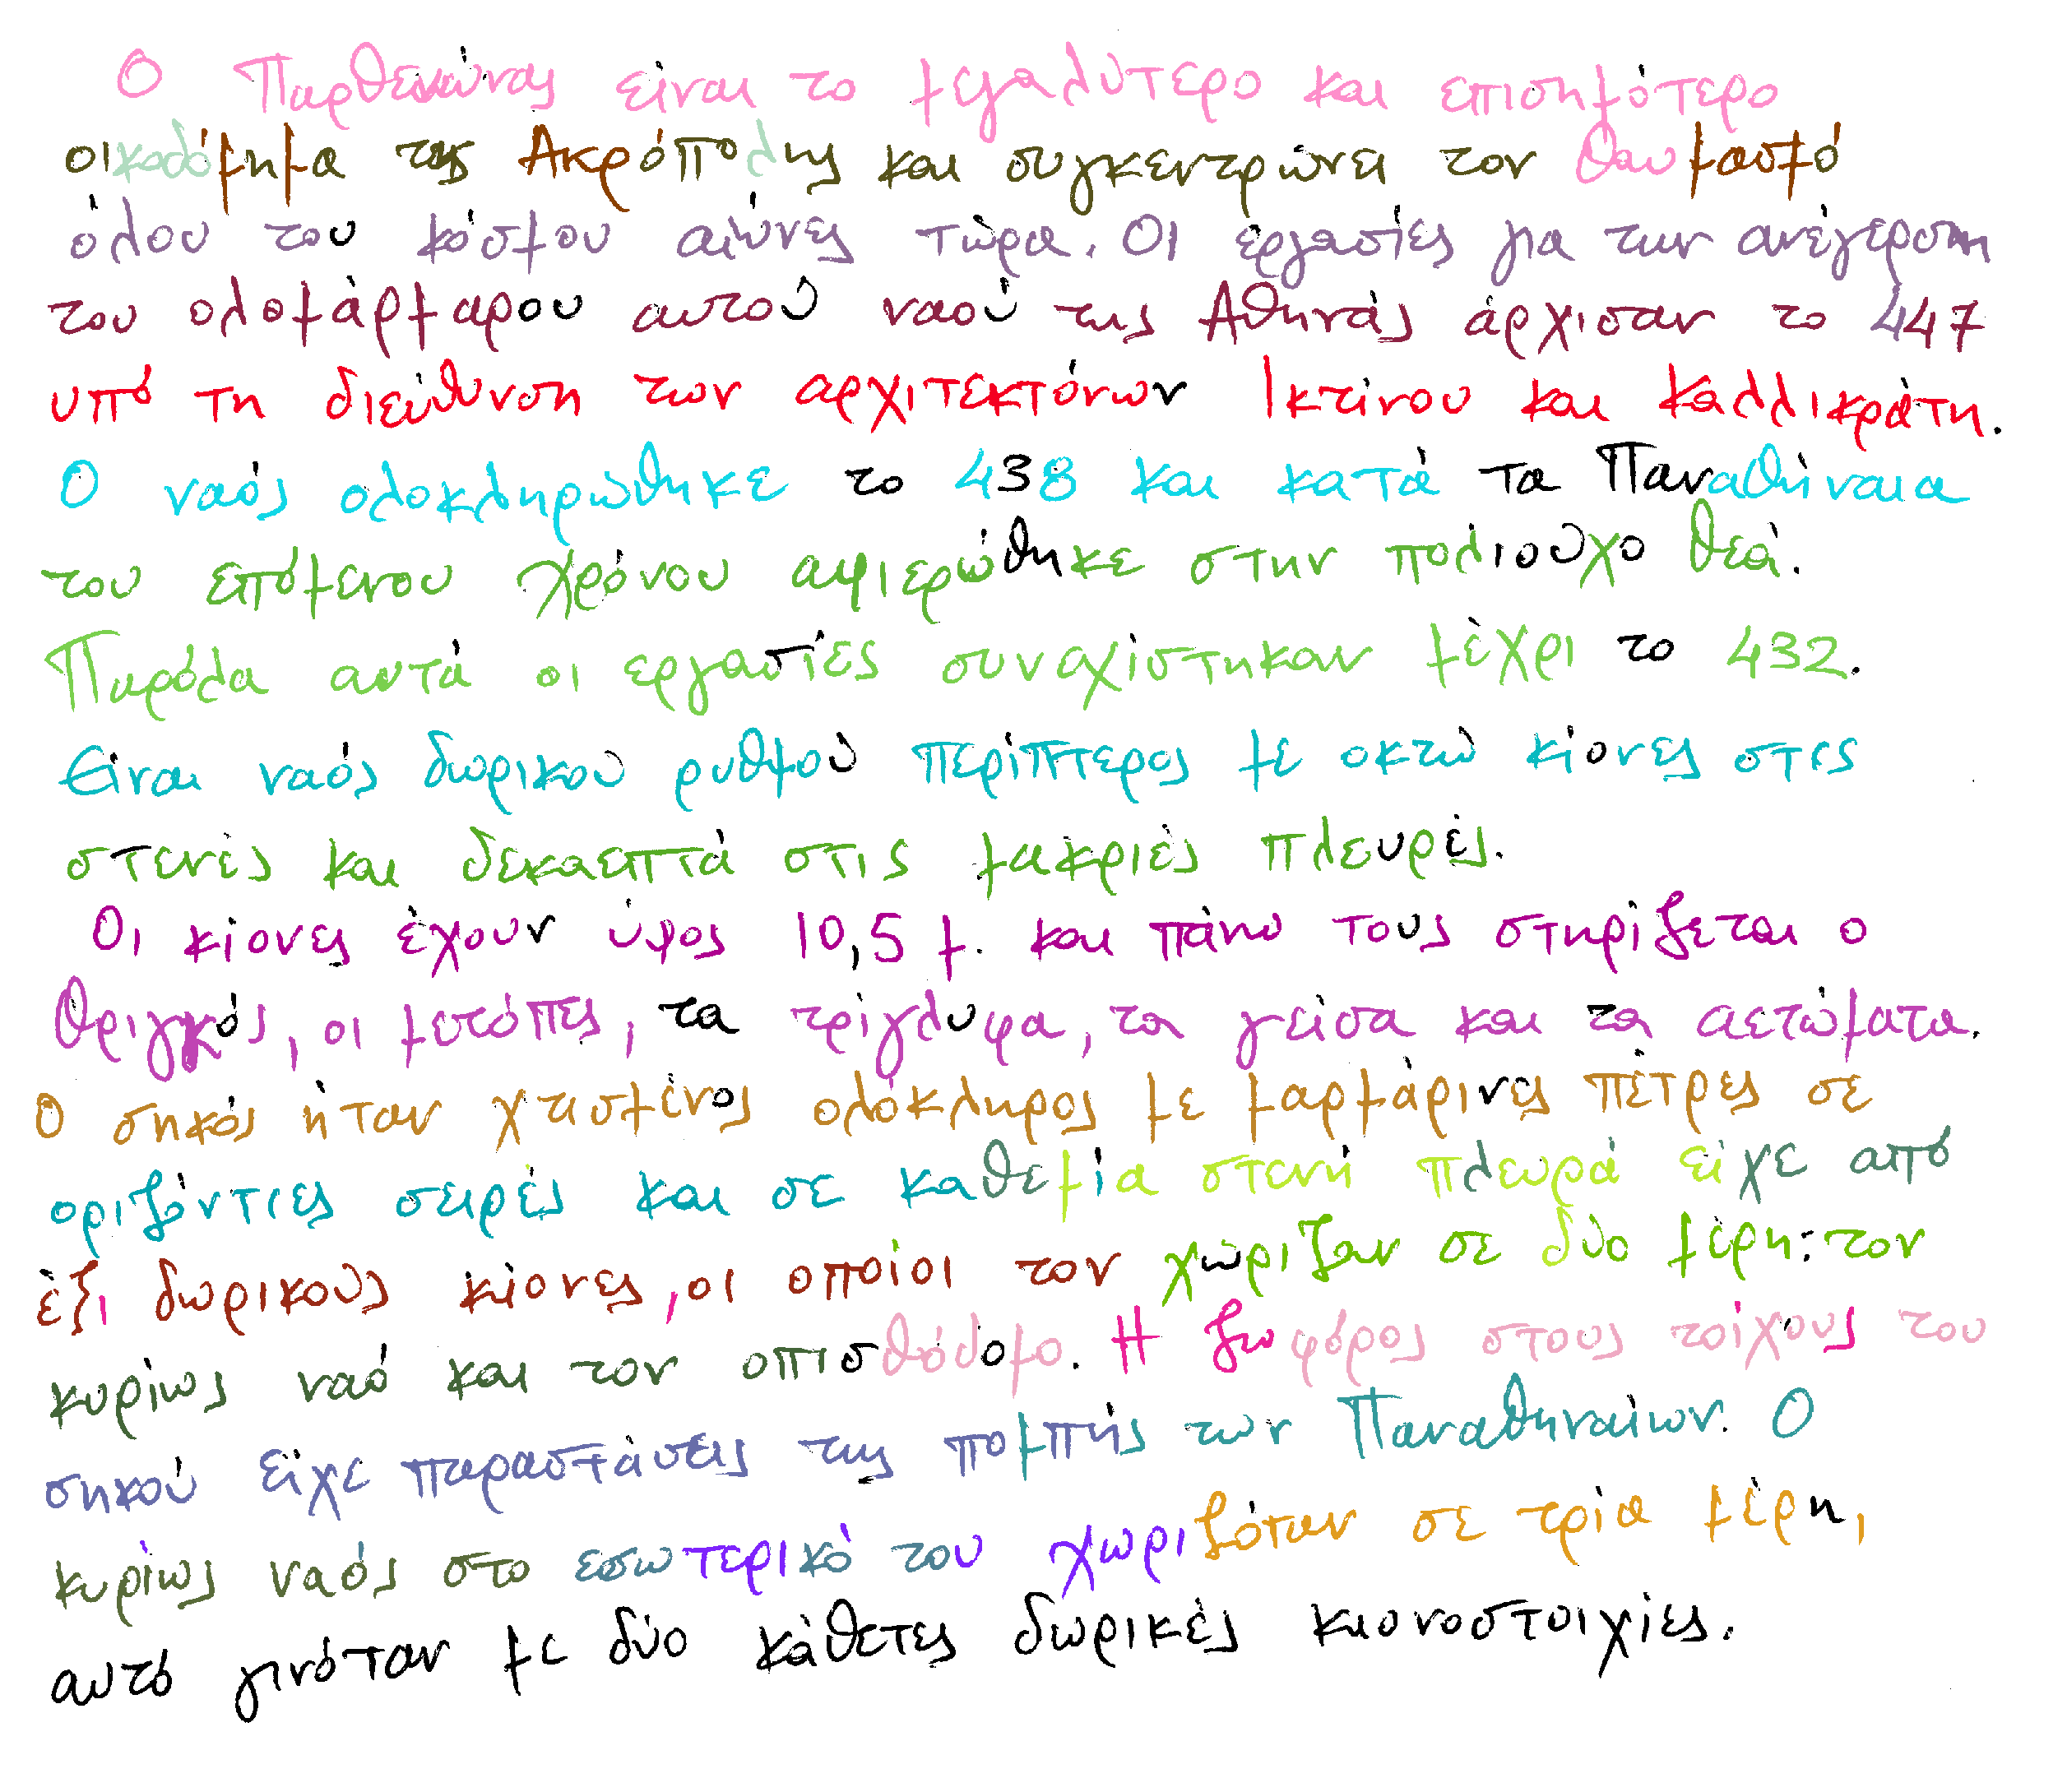 Ο Παρθενώνας είναι το μεγαλύτερο και επισημότερο
οικοδόμημα της Ακρόπολης και συγκεντρώνει τον θαυμασμό
όλου του κόσμου αιώνες τώρα. Οι εργασίες για την ανέγερση
του ολομάρμαρου αυτού ναού της Αθηνάς άρχισαν το 447
υπό τη διεύθυνση των αρχιτεκτόνων Ικτίνου και Καλλικράτη.
Ο ναός ολοκληρώθηκε το 438 και κατά τα Παναθήναια
του επόμενου χρόνου αφιερώθηκε στην πολιούχο θεά.
Παρόλα αυτά οι εργασίες συναχίστηκαν μέχρι το 432.
Είναι ναός δωρικού ρυθμού περίπτερος με οκτώ κίονες στις
στενές και δεκαεπτά στις μακριές πλευρές.
Οι κίονες έχουν ύψος 10,5 μ. και πάνω τους στηρίζεται ο
θριγκός, οι μετόπες, τα τρίγλυφα, τα γείσα και τα αετώματα.
Ο σηκός ήταν χτισμένος ολόκληρος με μαρμάρινες πέτρες σε
οριζόντιες σειρές και σε καθεμία στενή πλευρά είχε από
έξι δωρικούς κίονες, οι οποίοι τον χώριζαν σε δύο μέρη: τον
κυρίως ναό και τον οπισθόδομο. Η ζωφόρος στους τοίχους του
σηκού είχε παραστάσεις της πομπής των Παναθηναίων. Ο
κυρίως ναός στο εσωτερικό του χωριζόταν σε τρία μέρη,
αυτό γινόταν με δύο κάθετες δωρικές κιονοστοιχίες.